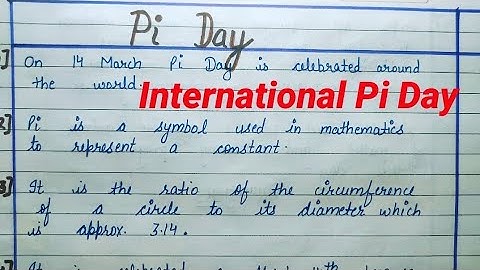 Pi Day
1] On 14 March Pi Day is celebrated around
the world
International Pi Day
2] Pi is a symbol used in mathematics
to represent a constant.
3] It is the ratio of the circumference
of a circle to its diameter which
is approx. 3.14.
It is celebrated